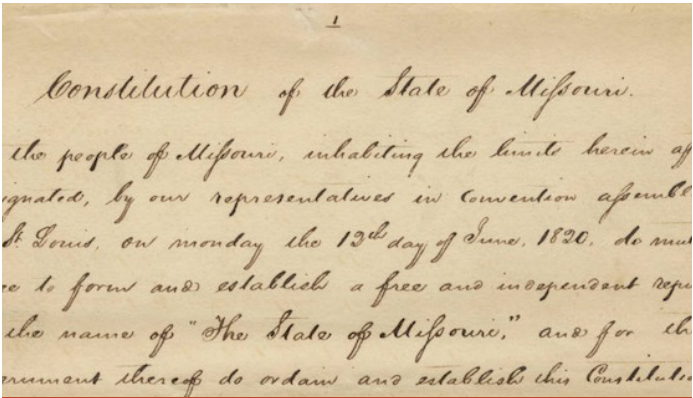 1
Constitution of the State of Missouri.
the people of Missouri, inhabiting the limits herein af
ignated, by our representatives in Convention assemble
St. Louis, on monday the 12th day of June, 1820, do mut
ee to form and establish a free and independent repu
the name of "The State of Missouri," and for the
ernment thereof do ordain and establish this Constitutio